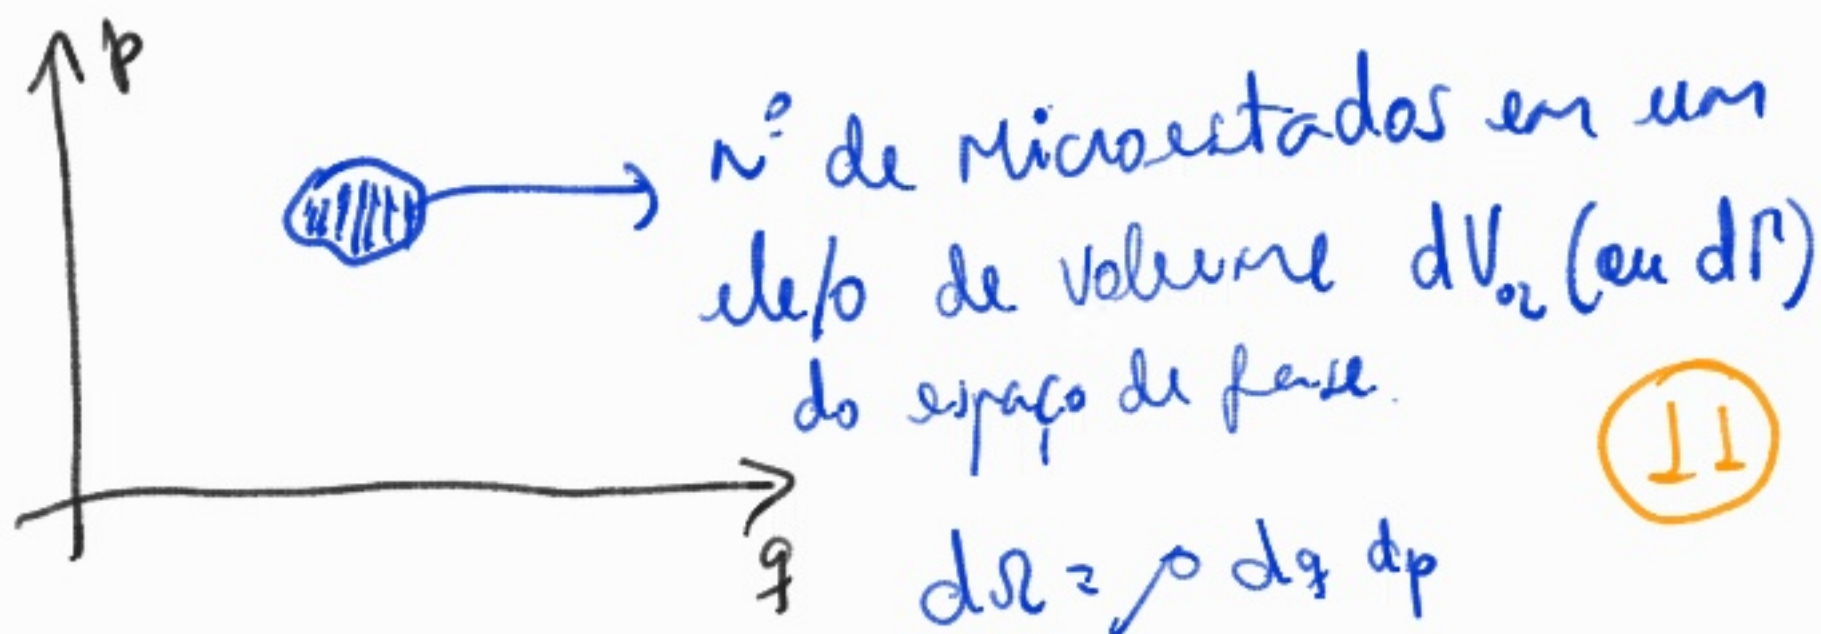 p
nº de Microestados em um
ele/o de volume dV (ou dΓ)
do espaço de fase.
11
q
dΩ = ρ dq dp